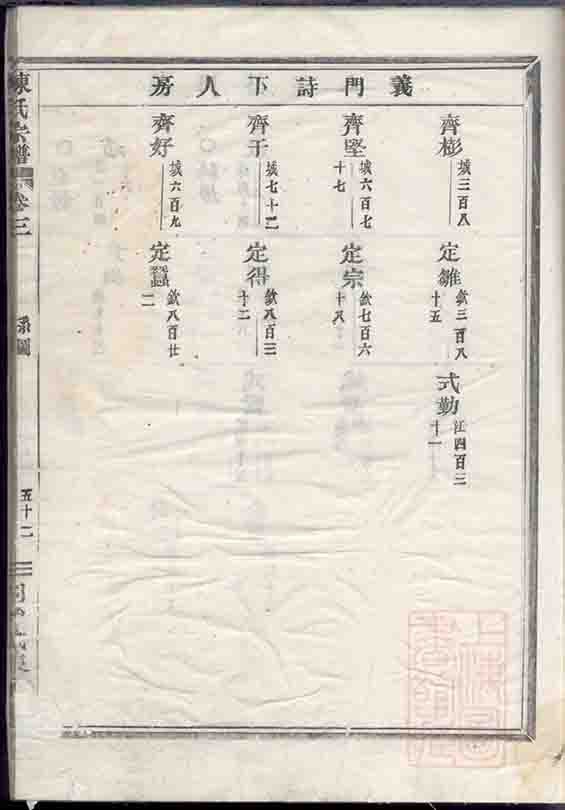 義門詩下人房
齊彭
城三百八
定雛
欽三百八
十五
式勤
江四百三
十一
齊堅
城六百七
十七
定宗
欽七百六
十八
齊于
城七十二
定得
欽八百三
十二
齊好
城六百九
定蠶
欽八百廿
二
陳氏宗譜
卷三
系圖
五十二